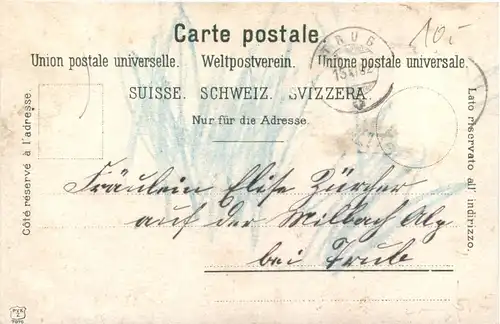 Carte postale.
Union postale universelle. Weltpostverein. Unione postale universale.
SUISSE. SCHWEIZ. SVIZZERA.
Nur für die Adresse.
Côté réservé à l'adresse.
Lato riservato all' indirizzo.
TRUB
Fräulein Elise Zürcher
auf der Milbach Alp
bei Trub